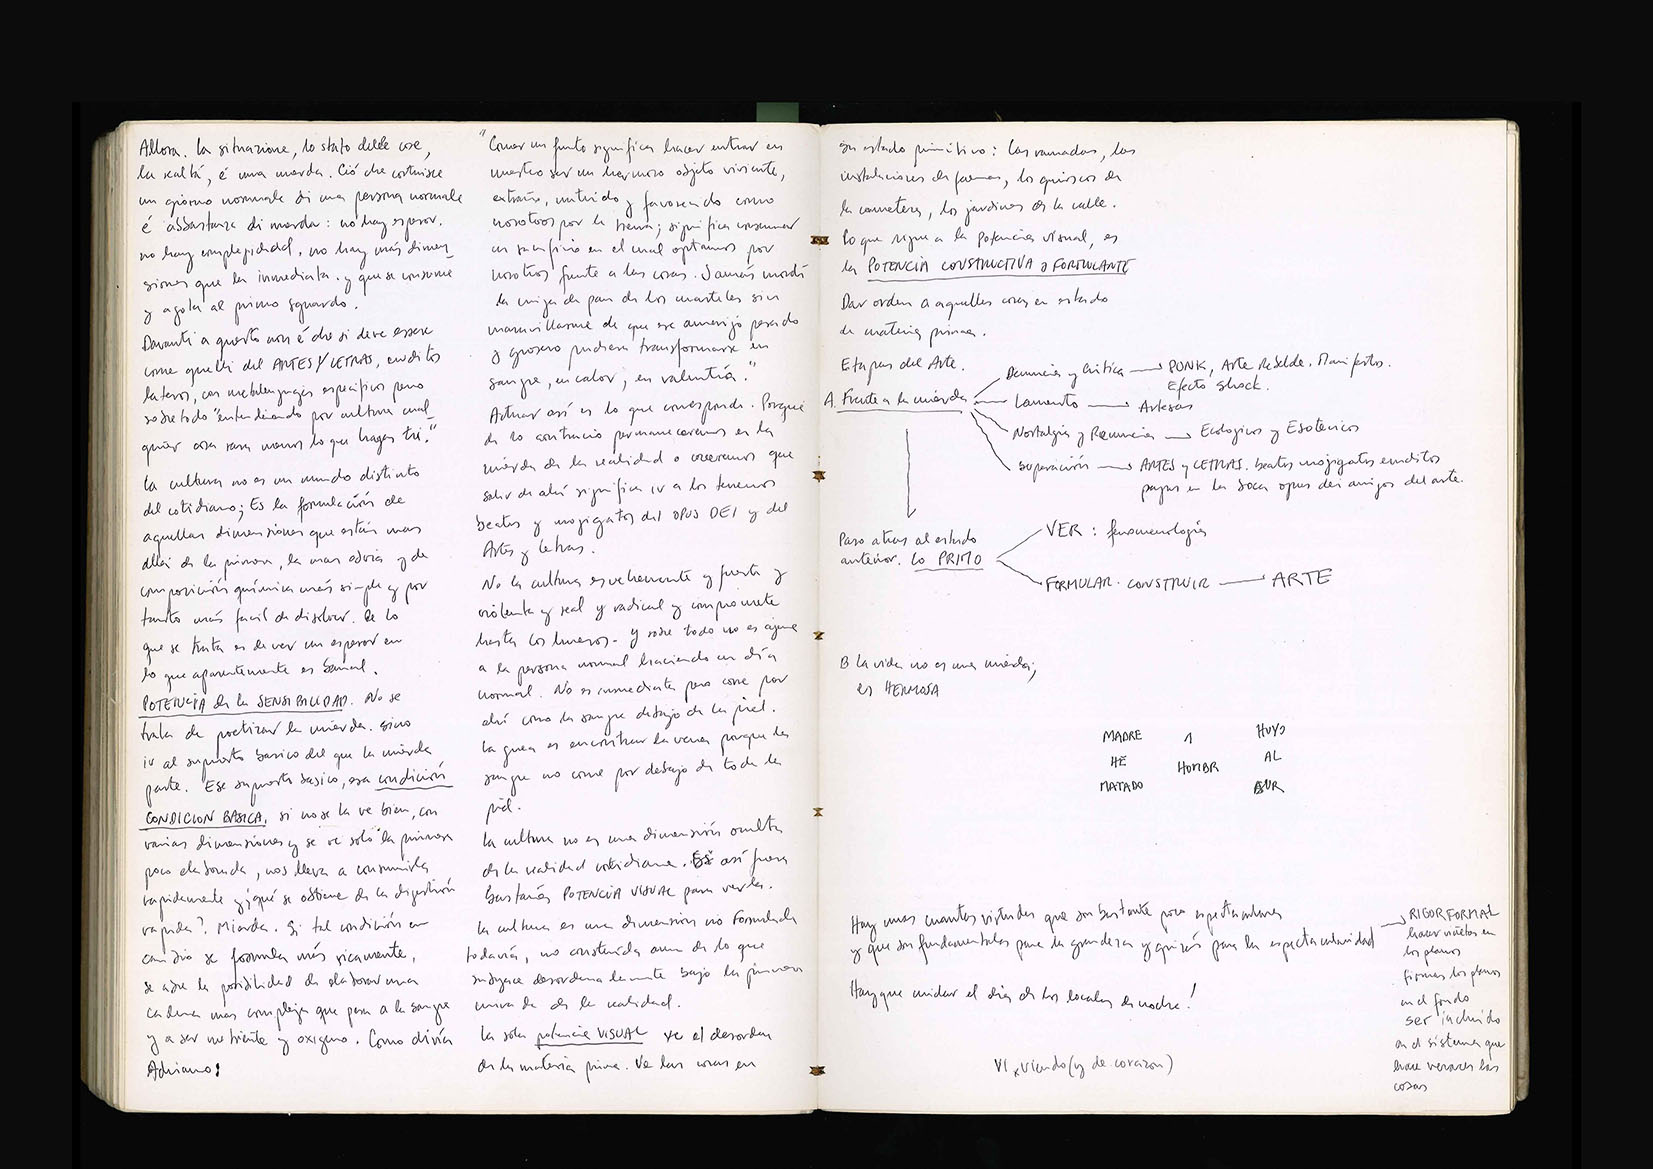 Allora. La situazione, lo stato delle cose,
la realtá, é una merda. Ció che costruisce
un giorno normale di una persona normale
é abbastanza di merda: no hay espesor.
no hay complejidad, no hay más dimen_
siones que la inmediata. y que se consume
y agota al primo sguardo.
Davanti a questo non é che si deve essere
come quelli del ARTES Y LETRAS, eruditos
lateros, con metalenguajes específicos pero
sobretodo "entendiendo por cultura cual_
quier cosa rara menos lo que hagas tú."
La cultura no es un mundo distinto
del cotidiano; Es la formulación de
aquellas dimensiones que están mas
allá de la primera, la mas obvia y de
composición química más simple y por
tanto más facil de disolver. De lo
que se trata es de ver un espesor en
lo que aparentemente es banal.
POTENCIA de la SENSIBILIDAD. No se
trata de poetizar la mierda. sino
ir al supuesto basico del que la mierda
parte. Ese supuesto basico, esa condición
CONDICION BASICA, si no se la ve bien, con
varias dimensiones y se ve solo la primera
poco elaborada, nos lleva a consumirla
rapidamente y ¿qué se obtiene de la digestión
rapida? Mierda. Si tal condición en
cambio se formula más ricamente,
se abre la posibilidad de elaborar una
cadena mas compleja que pasa a la sangre
y a ser nutriente y oxigeno. Como diría
Adriano:
"Comer un fruto significa hacer entrar en
nuestro ser un hermoso objeto viviente,
extraño, nutrido y favorecido como
nosotros por la tierra; significa consumar
un sacrificio en el cual optamos por
nosotros frente a las cosas. Jamás mordí
la miga de pan de los cuarteles sin
maravillarme de que ese amasijo pesado
y grosero pudiera transformarse en
sangre, en calor, en valentía."
Actuar así es lo que corresponde. Porque
de lo contrario permaneceremos en la
mierda de la realidad o creeremos que
salir de ahí significa ir a los terrenos
beatos y mojigatos del OPUS DEI y del
Artes y Letras.
No la cultura es vehemente y fuerte y
violenta y real y radical y compromete
hasta los huesos. y sobre todo no es ajena
a la persona normal haciendo un día
normal. No es inmediata pero corre por
ahí como la sangre debajo de la piel.
La gracia es encontrar la vena porque la
sangre no corre por debajo de toda la
piel.
La cultura no es una dimensión oculta
de la realidad cotidiana. así fuera
bastaría POTENCIA VISUAL para verla.
La cultura es una dimensión no Formulada
todavía, no construida aun de lo que
subyace desordenadamente bajo la primera
mirada de la realidad.
La sola potencia VISUAL ve el desorden
de la materia prima. Ve las cosas en
su estado primitivo: Las ramadas, las
instalaciones de faenas, los quioscos de
la carretera, los jardines de la calle.
Lo que sigue a la potencia visual, es
la POTENCIA CONSTRUCTIVA o FORMULANTE
Dar orden a aquellas cosas en estado
de materia prima.
Etapas del Arte.
A. Frente a la mierda
Denuncia y Critica → PUNK, Arte Rebelde. Manifiestos.
Efecto Shock.
Lamento → Artesas
Nostalgia y Renuncia → Ecologicos y Esotericos
Superación → ARTES y LETRAS. beatos mojigatos eruditos
papas en la boca opus dei amigos del arte.
Paso atras al estado
anterior. Lo PRIMO
VER: fenomenología
FORMULAR. CONSTRUIR → ARTE
B La vida no es una mierda;
es HERMOSA
MADRE 1 HUYO
HE HOMBR AL
MATADO SUR
Hay unas cuantas virtudes que son bastante poco espectaculares
y que son fundamentales para la grandeza y quizás para la espectacularidad
→ RIGOR FORMAL
hacer viñetas en
los planos
firmar los planos
en el fondo
ser incluido
en el sistema que
hace veraces las
cosas
Hay que cuidar el día de los locales de noche!
VIxViendo (y de corazon)